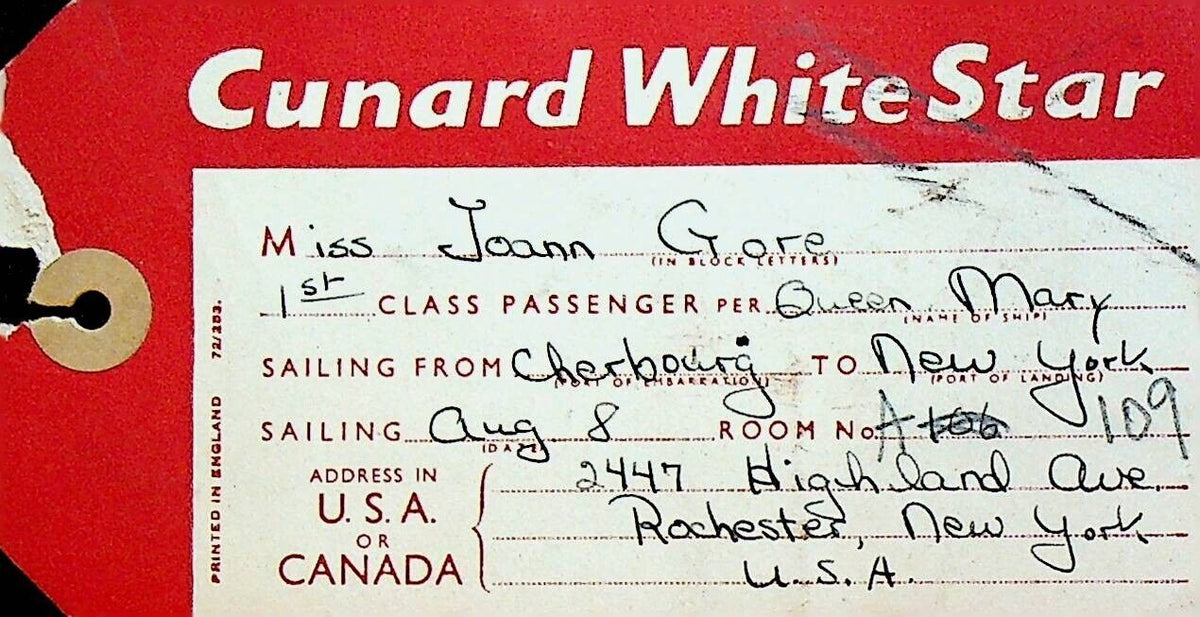 Cunard White Star
Miss Joann Gore
(IN BLOCK LETTERS)
1st CLASS PASSENGER PER Queen Mary
(NAME OF SHIP)
SAILING FROM Cherbourg TO New York
(PORT OF EMBARKATION) (PORT OF LANDING)
SAILING Aug 8 ROOM No. A 106 109
(DATE)
ADDRESS IN
U.S.A.
OR
CANADA
2447 Highland Ave.
Rochester, New York
U.S.A.
PRINTED IN ENGLAND 72/253.